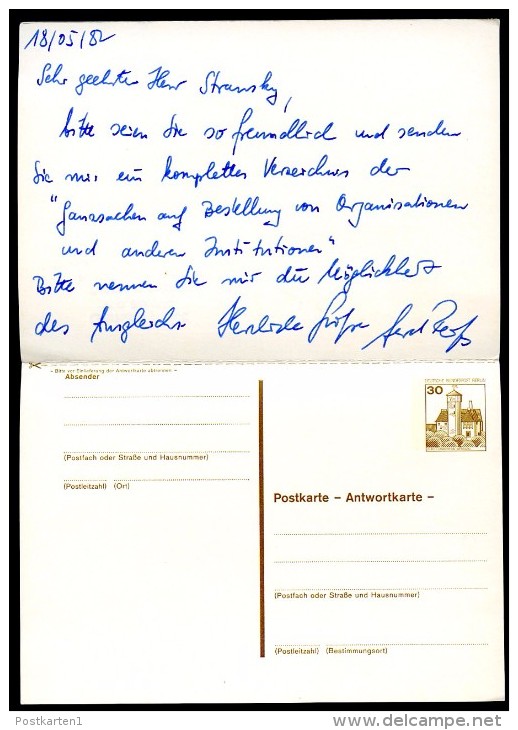 18/05/82
Sehr geehrter Herr Stransky,
bitte seien Sie so freundlich und senden
Sie mir ein komplettes Verzeichnis der
"Ganzsachen auf Bestellung von Organisationen
und anderen Institutionen"
Bitte nennen Sie mir die Möglichkeit
des Ausgleichs Herzliche Grüße
- Bitte vor Einlieferung der Antwortkarte abtrennen -
Absender
(Postfach oder Straße und Hausnummer)
(Postleitzahl) (Ort)
DEUTSCHE BUNDESPOST BERLIN
30
Postkarte – Antwortkarte –
(Postfach oder Straße und Hausnummer)
(Postleitzahl) (Bestimmungsort)
Postkarten1
www.delcampe.net